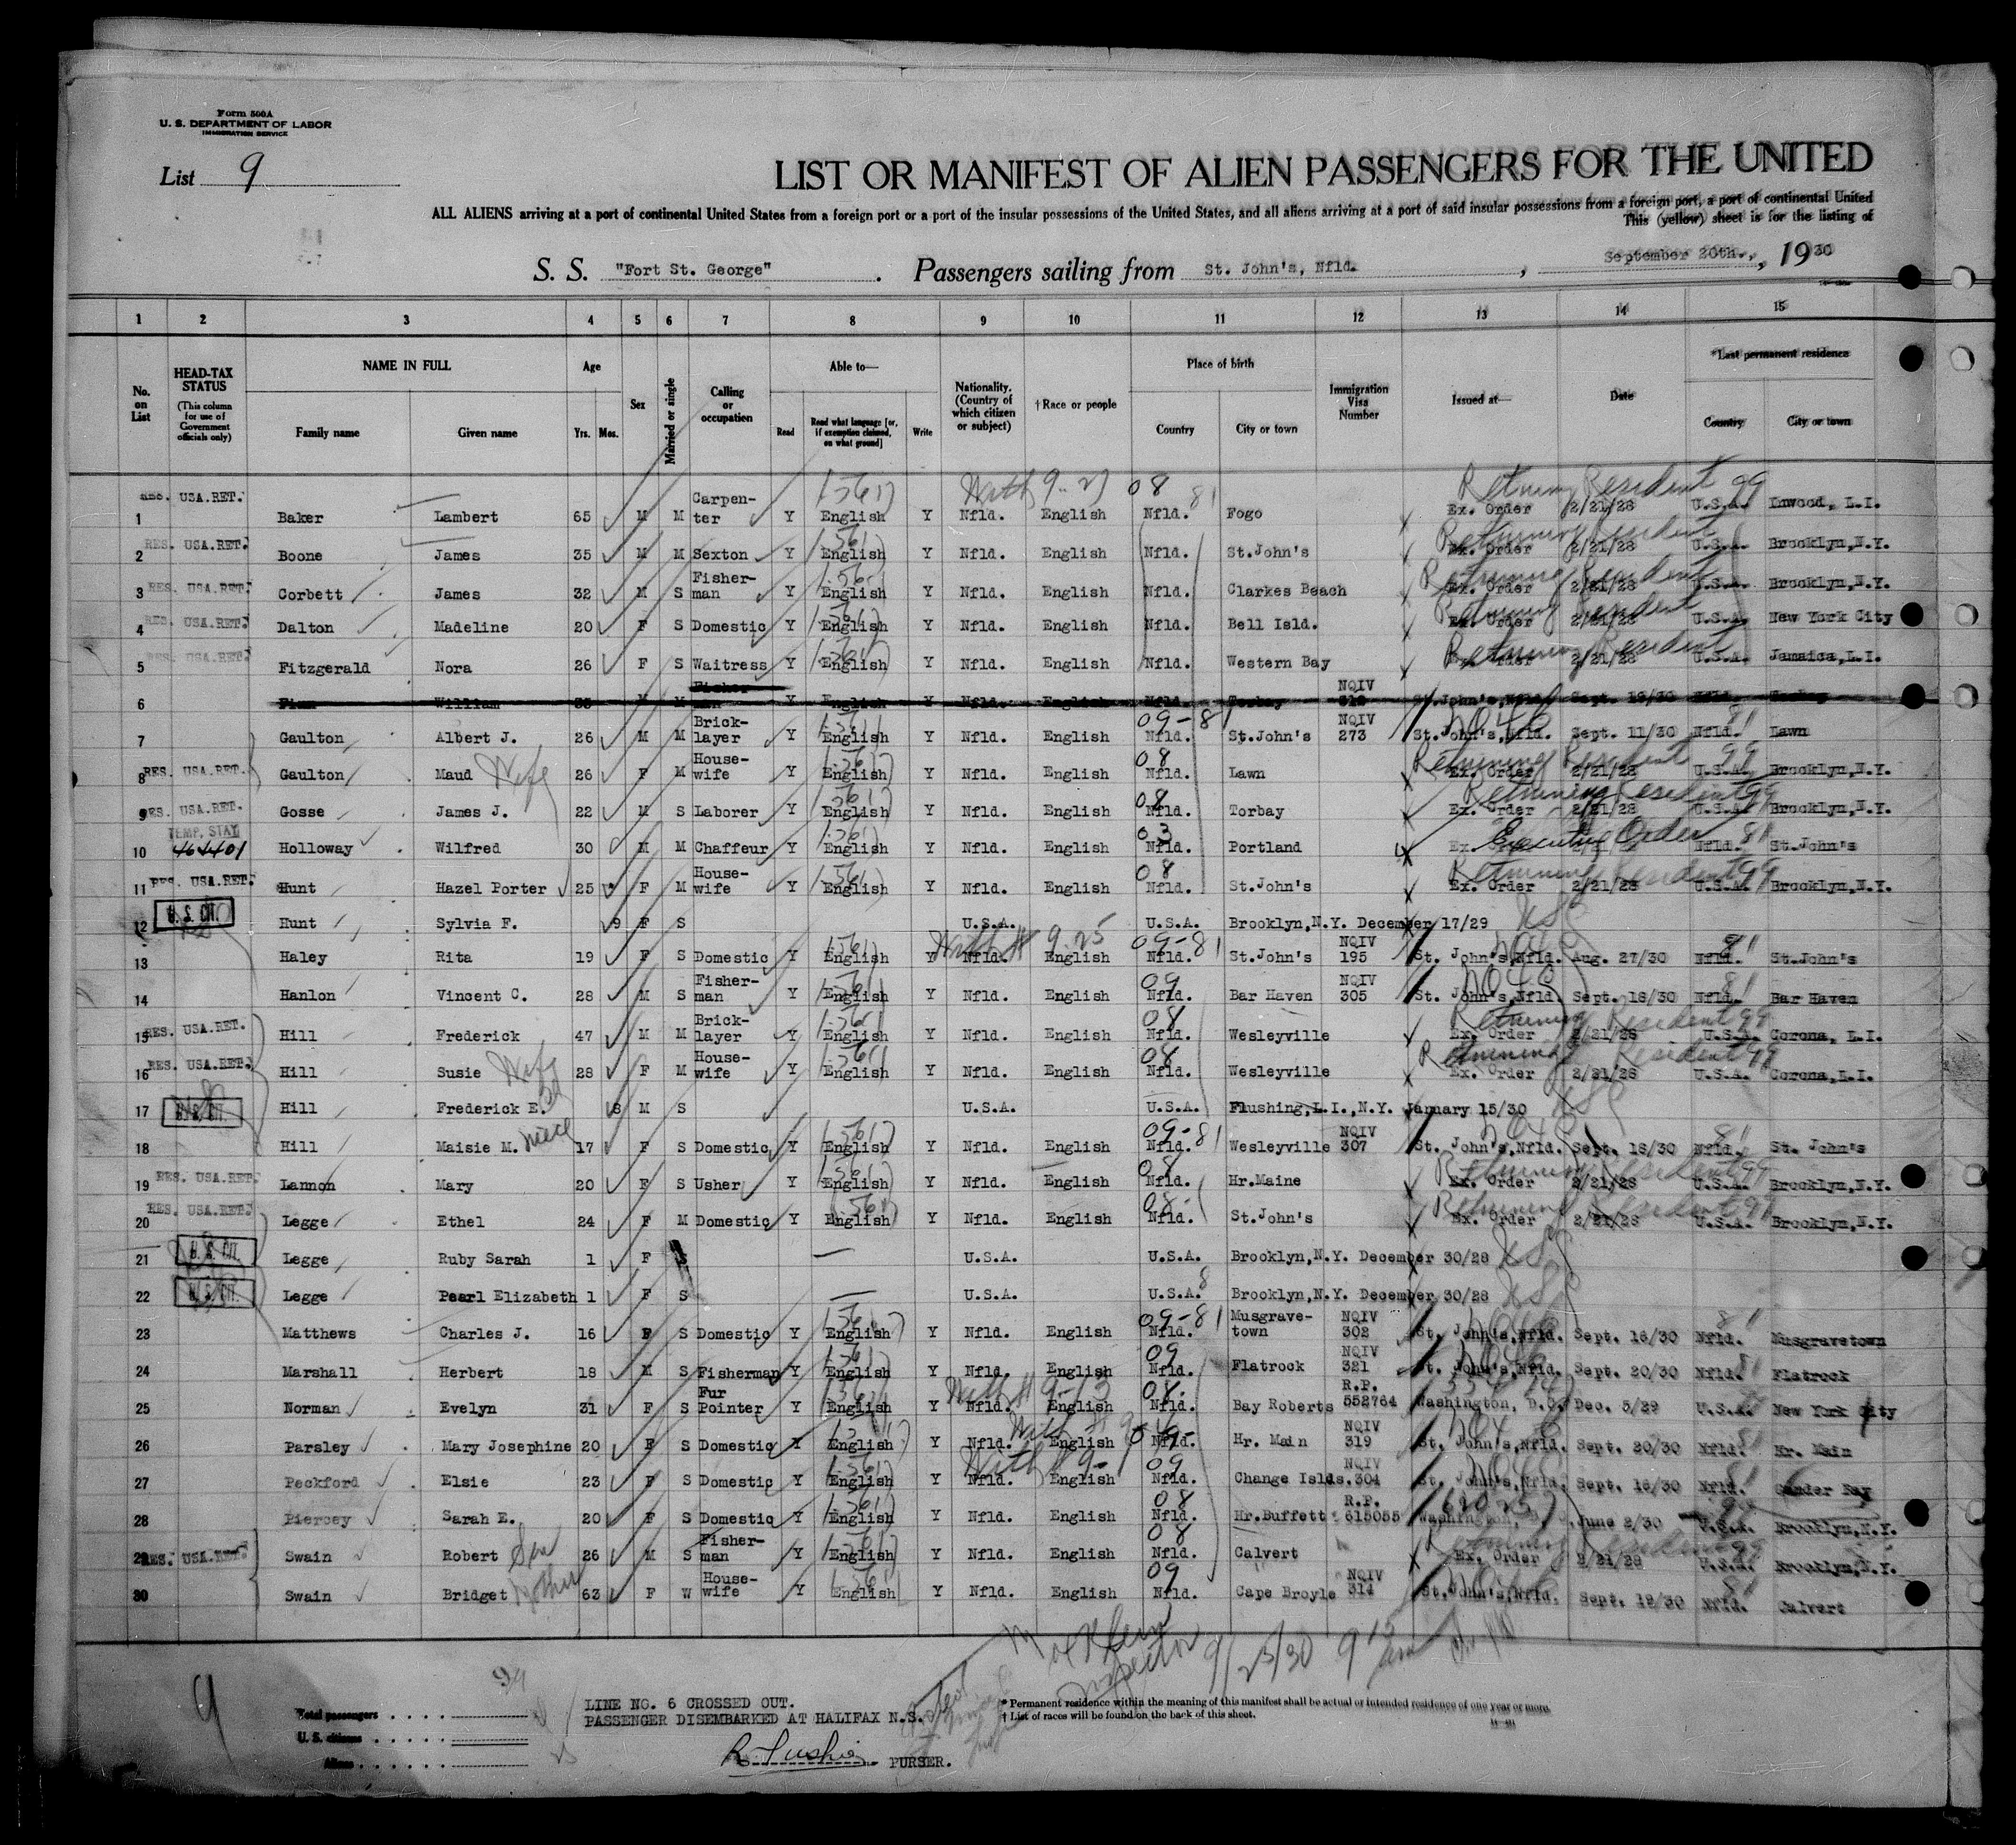 Form 500A
U. S. DEPARTMENT OF LABOR
IMMIGRATION SERVICE
List 9
LIST OR MANIFEST OF ALIEN PASSENGERS FOR THE UNITED
ALL ALIENS arriving at a port of continental United States from a foreign port or a port of the insular possessions of the United States, and all aliens arriving at a port of said insular possessions from a foreign port, a port of continental United
This (yellow) sheet is for the listing of
S. S. "Fort St. George" . Passengers sailing from St. John's, Nfld. , September 20th., , 1930
1 2 3 4 5 6 7 8 9 10 11 12 13 14 15
No. on List
HEAD-TAX STATUS (This column for use of Government officials only)
NAME IN FULL
Family name Given name
Age
Yrs. Mos.
Sex
Married or single
Calling or occupation
Able to—
Read Read what language [or, if exemption claimed, on what ground] Write
Nationality. (Country of which citizen or subject)
† Race or people
Place of birth
Country City or town
Immigration Visa Number
Issued at—
Date
*Last permanent residence
Country City or town
1 RES. USA.RET. Baker Lambert 65 M M Carpen-ter Y English Y Nfld. English Nfld. Fogo Ex. Order 2/21/28 U.S.A. Inwood, L.I. Returning Resident 99
2 RES. USA.RET. Boone James 35 M M Sexton Y English Y Nfld. English Nfld. St.John's Ex. Order 2/21/28 U.S.A. Brooklyn,N.Y. Returning Resident
3 RES. USA.RET. Corbett James 32 M S Fisher-man Y English Y Nfld. English Nfld. Clarkes Beach Ex. Order 2/21/28 U.S.A. Brooklyn,N.Y. Returning Resident
4 RES. USA.RET. Dalton Madeline 20 F S Domestic Y English Y Nfld. English Nfld. Bell Isld. Ex. Order 2/21/28 U.S.A. New York City Returning Resident
5 RES. USA.RET. Fitzgerald Nora 26 F S Waitress Y English Y Nfld. English Nfld. Western Bay Ex. Order 2/21/28 U.S.A. Jamaica,L.I. Returning Resident
6 William 33 M M Fisher-man Y English Y Nfld. English Nfld. Torbay NQIV St.John's,Nfld. Sept. 19/30 Nfld. Torbay
7 Gaulton Albert J. 26 M M Brick-layer Y English Y Nfld. English 09-81 Nfld. St.John's NQIV 273 St.John's,Nfld. Sept. 11/30 Nfld. Lawn
8 RES. USA.RET. Gaulton Maud Wife 26 F M House-wife Y English Y Nfld. English 08 Nfld. Lawn Ex. Order 2/21/28 U.S.A. Brooklyn,N.Y. Returning Resident 99
9 RES. USA.RET. Gosse James J. 22 M S Laborer Y English Y Nfld. English 08 Nfld. Torbay Ex. Order 2/21/28 U.S.A. Brooklyn,N.Y. Returning Resident 99
10 TEMP. STAY 464401 Holloway Wilfred 30 M M Chaffeur Y English Y Nfld. English 03 Nfld. Portland Executive Order Nfld. St.John's
11 RES. USA.RET. Hunt Hazel Porter 25 F M House-wife Y English Y Nfld. English 08 Nfld. St.John's Ex. Order 2/21/28 U.S.A. Brooklyn,N.Y. Returning Resident 99
12 U. S. CIT. Hunt Sylvia F. 9 F S U.S.A. U.S.A. Brooklyn,N.Y. December 17/29
13 Haley Rita 19 F S Domestic Y English Y Nfld. English 09-81 Nfld. St.John's NQIV 195 St. John's,Nfld. Aug. 27/30 Nfld. St.John's
14 Hanlon Vincent C. 28 M S Fisher-man Y English Y Nfld. English 09 Nfld. Bar Haven NQIV 305 St. John's,Nfld. Sept. 18/30 Nfld. Bar Haven
15 RES. USA.RET. Hill Frederick 47 M M Brick-layer Y English Y Nfld. English 08 Nfld. Wesleyville Ex. Order 2/21/28 U.S.A. Corona, L.I. Returning Resident 99
16 RES. USA.RET. Hill Susie Wife 28 F M House-wife Y English Y Nfld. English 08 Nfld. Wesleyville Ex. Order 2/21/28 U.S.A. Corona,L.I. Returning Resident 99
17 U. S. CIT. Hill Frederick E. 8 M S U.S.A. U.S.A. Flushing,L.I.,N.Y. January 15/30
18 Hill Maisie M. niece 17 F S Domestic Y English Y Nfld. English 09-81 Nfld. Wesleyville NQIV 307 St. John's,Nfld. Sept. 18/30 Nfld. St. John's
19 RES. USA.RET. Lannon Mary 20 F S Usher Y English Y Nfld. English 08 Nfld. Hr.Maine Ex. Order 2/21/28 U.S.A. Brooklyn,N.Y. Returning Resident 99
20 RES. USA.RET. Legge Ethel 24 F M Domestic Y English Y Nfld. English 08 Nfld. St.John's Ex. Order 2/21/28 U.S.A. Brooklyn,N.Y. Returning Resident 99
21 U. S. CIT. Legge Ruby Sarah 1 F S — U.S.A. U.S.A. Brooklyn,N.Y. December 30/28
22 U. S. CIT. Legge Pearl Elizabeth 1 F S — U.S.A. U.S.A. Brooklyn,N.Y. December 30/28
23 Matthews Charles J. 16 S Domestic Y English Y Nfld. English 09-81 Nfld. Musgrave-town NQIV 302 St. John's,Nfld. Sept. 16/30 Nfld. Musgravetown
24 Marshall Herbert 18 M S Fisherman Y English Y Nfld. English 09 Nfld. Flatrock NQIV 321 St. John's,Nfld. Sept. 20/30 Nfld. Flatrock
25 Norman Evelyn 31 F S Fur Pointer Y English Y Nfld. English 08 Nfld. Bay Roberts R.P. 552764 Washington, D.C. Dec. 5/29 U.S.A. New York City
26 Parsley Mary Josephine 20 F S Domestic Y English Y Nfld. English Nfld. Hr. Main NQIV 319 St. John's,Nfld. Sept. 20/30 Nfld. Hr. Main
27 Peckford Elsie 23 F S Domestic Y English Y Nfld. English 09 Nfld. Change Islds. NQIV 304 St. John's,Nfld. Sept. 16/30 Nfld. Gander Bay
28 Piercey Sarah E. 20 F S Domestic Y English Y Nfld. English 08 Nfld. Hr.Buffett R.P. 615055 Washington, June 2/30 U.S.A. Brooklyn,N.Y.
29 RES. USA.RET. Swain Robert Son 26 M S Fisher-man Y English Y Nfld. English 08 Nfld. Calvert Ex. Order 2/21/28 U.S.A. Brooklyn,N.Y. Returning Resident 99
30 Swain Bridget Mother 63 F W House-wife Y English Y Nfld. English 09 Nfld. Cape Broyle NQIV 314 St.John's,Nfld. Sept. 19/30 Nfld. Calvert
Inspector 9/25/30 9 15 am
9
Total passengers
U. S. citizens
Aliens
LINE NO. 6 CROSSED OUT.
PASSENGER DISEMBARKED AT HALIFAX N.S.
PURSER.
* Permanent residence within the meaning of this manifest shall be actual or intended residence of one year or more.
† List of races will be found on the back of this sheet.